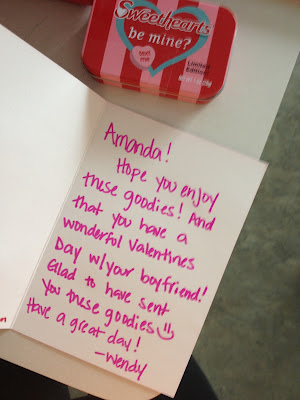 Sweethearts
be mine?
text me
Limited
Edition
Amanda!
Hope you enjoy
these goodies! And
that you have a
wonderful Valentines
Day w/your boyfriend!
Glad to have sent
you these goodies
Have a great day!
-Wendy